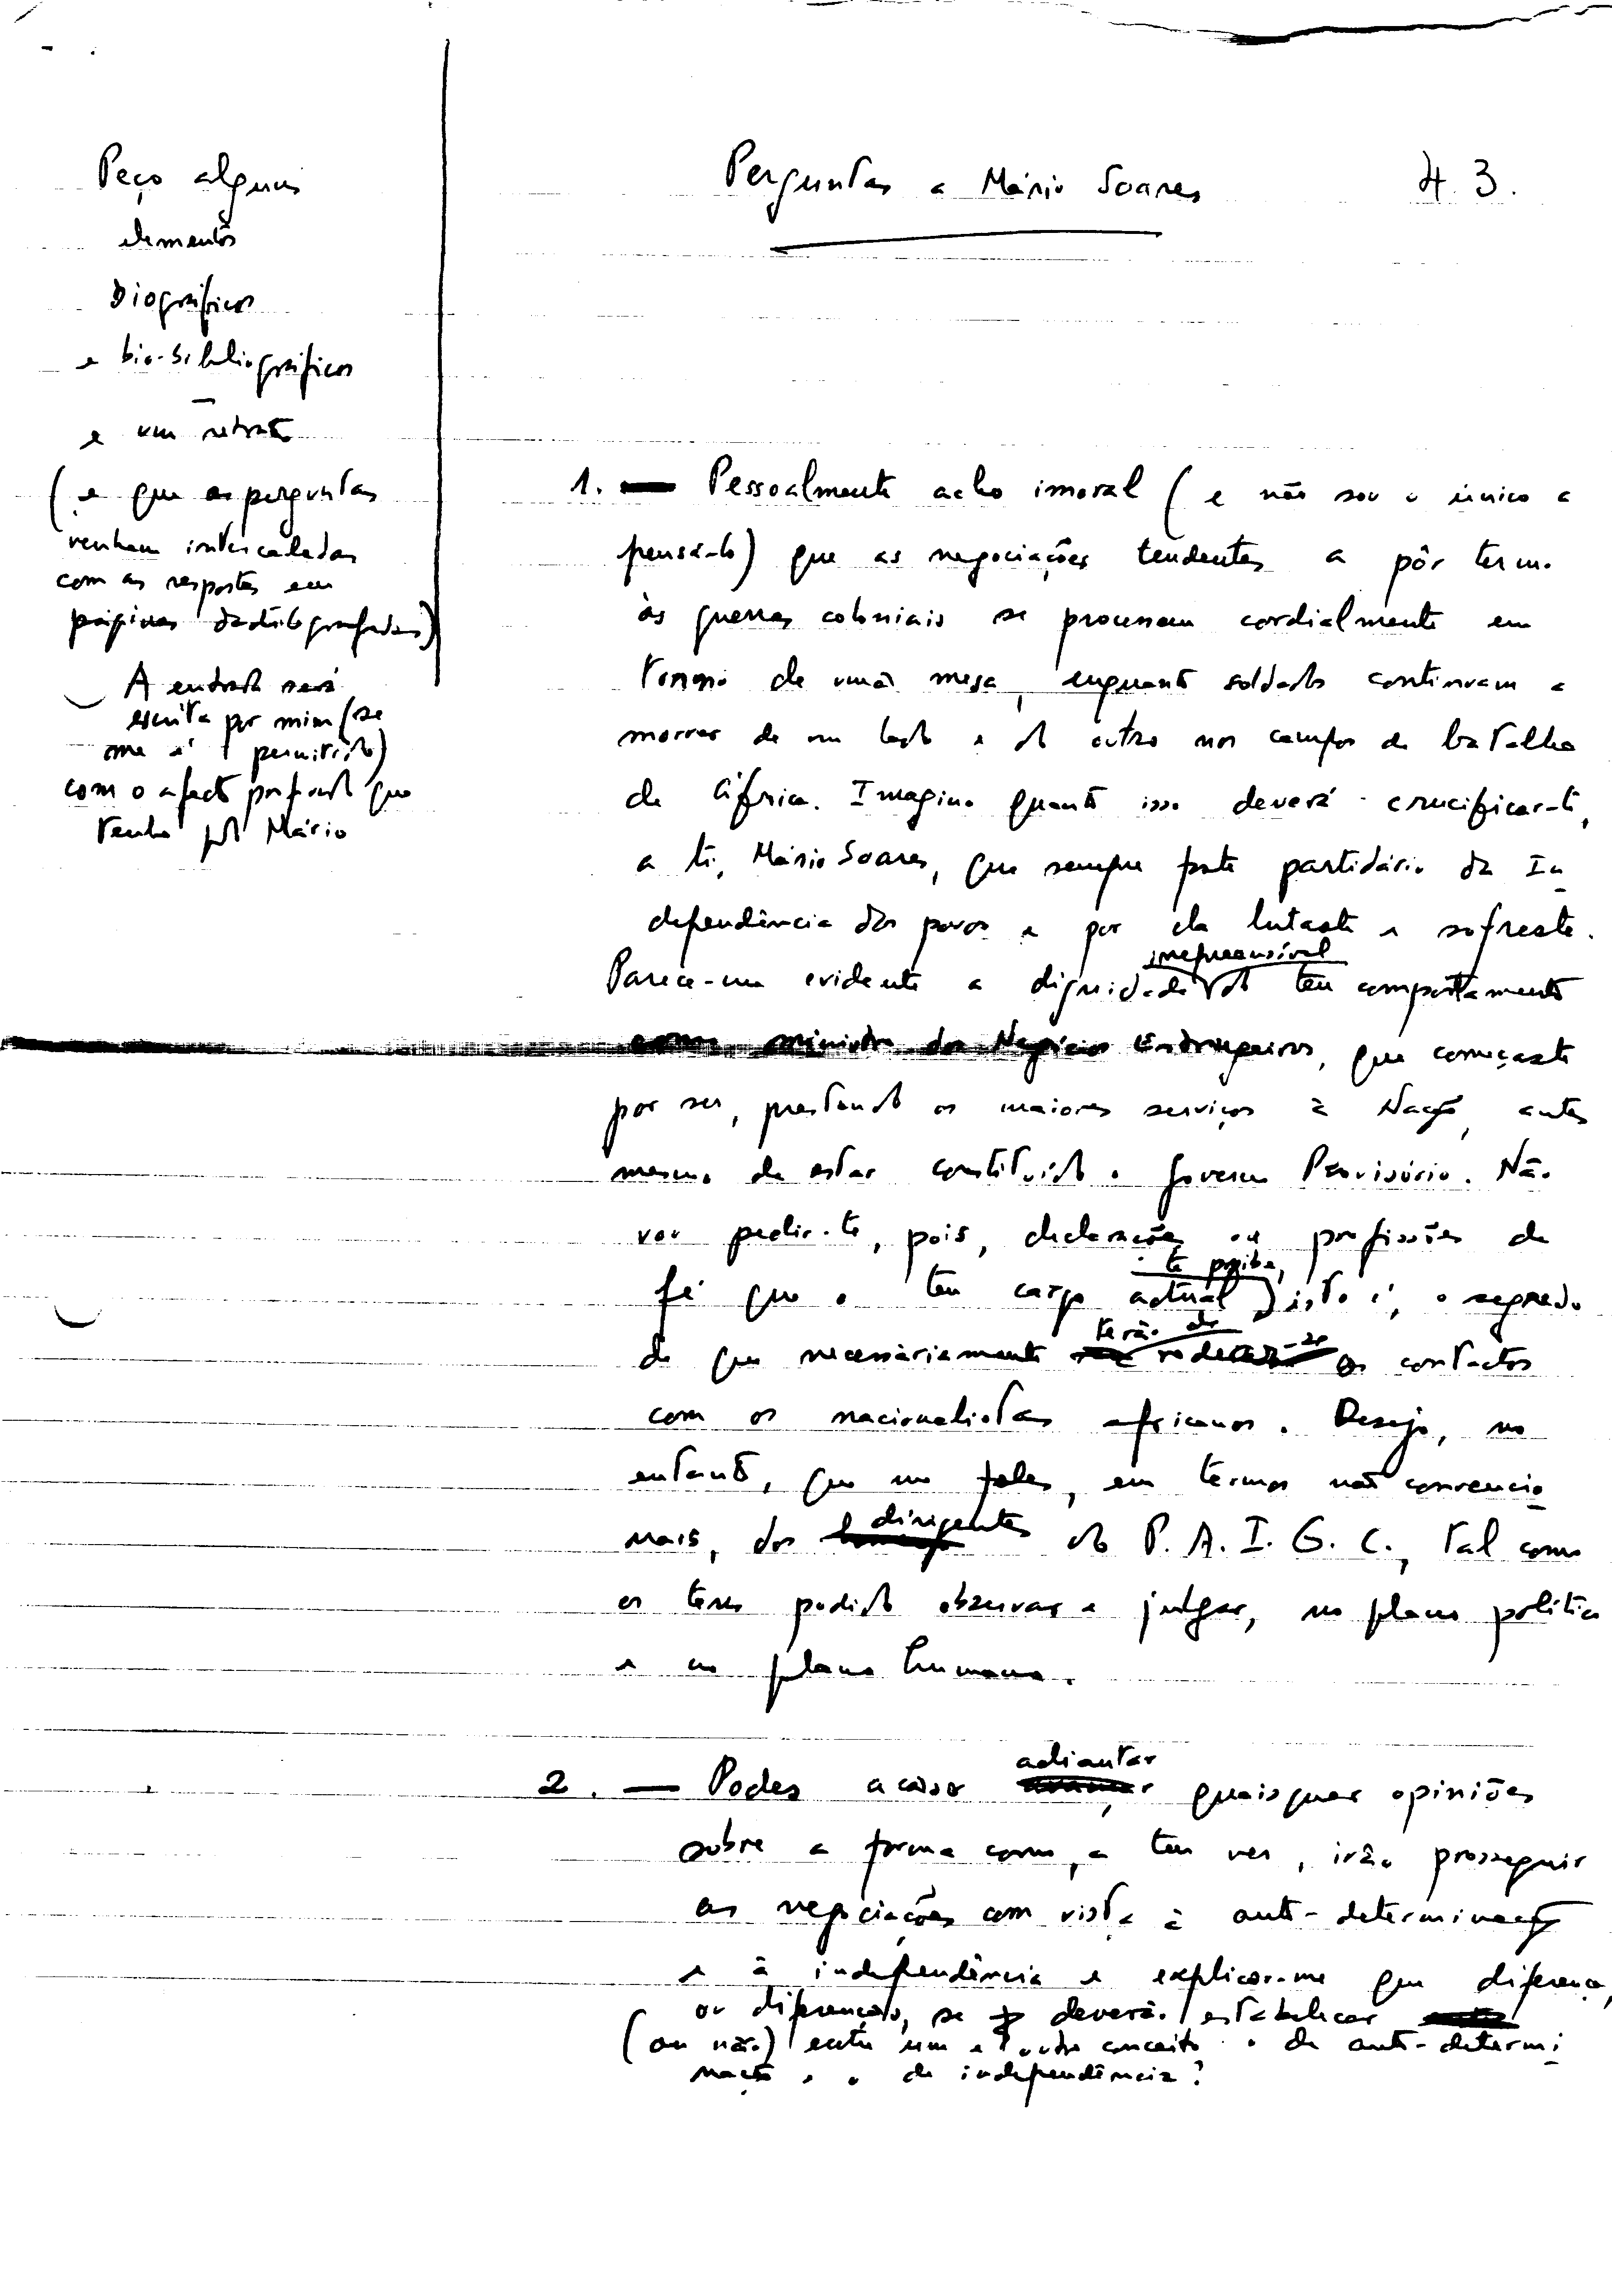 Peço alguns
elementos
biográficos
e bio-bibliográficos
e um retrato
(e que as perguntas
venham intercaladas
com as respostas em
páginas dactilografadas)
A entrada será
escrita por mim (se
me é permitido)
com o afecto profundo que
tenho pelo Mário
Perguntas a Mário Soares
43.
1. — Pessoalmente acho imoral (e não sou o único a
pensá-lo) que as negociações tendentes a pôr termo
às guerras coloniais se processem cordialmente em
torno de uma mesa, enquanto soldados continuam a
morrer de um lado e do outro nos campos de batalha
de África. Imagino quanto isso deverá crucificar-te,
a ti, Mário Soares, que sempre foste partidário da In
dependência dos povos e por ela lutaste e sofreste.
Parece-me evidente a dignidade irrepreensível do teu comportamento
como ministro dos Negócios Estrangeiros, que começaste
por ser, prestando os maiores serviços à Nação, antes
mesmo de estar constituído o Governo Provisório. Não
vou pedir-te, pois, declarações ou profissões de
fé que o teu cargo actual te proíbe, isto é, o segredo
de que necessàriamente terão de rodear-se os contactos
com os nacionalistas africanos. Desejo, no
entanto, que me fales, em termos não convencio
nais, dos dirigentes do P. A. I. G. C., tal como
os tens podido observar e julgar, no plano político
e no plano humano.
2. — Podes acaso adiantar quaisquer opiniões
sobre a forma como, a teu ver, irão prosseguir
as negociações com vista à auto-determinação
e à independência e explicar-me que diferença,
ou diferenças, se deverão estabelecer
(ou não) entre um e outro conceito o de auto-determi
nação e o de independência?